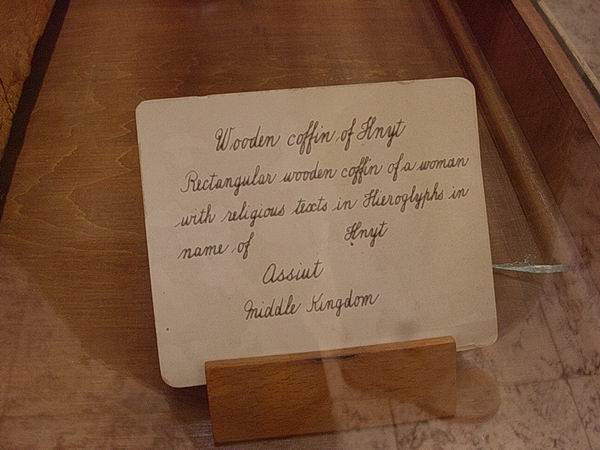 Wooden coffin of Hnyt
Rectangular wooden coffin of a woman
with religious texts in Hieroglyphs in
name of Hnyt
Assiut
Middle Kingdom